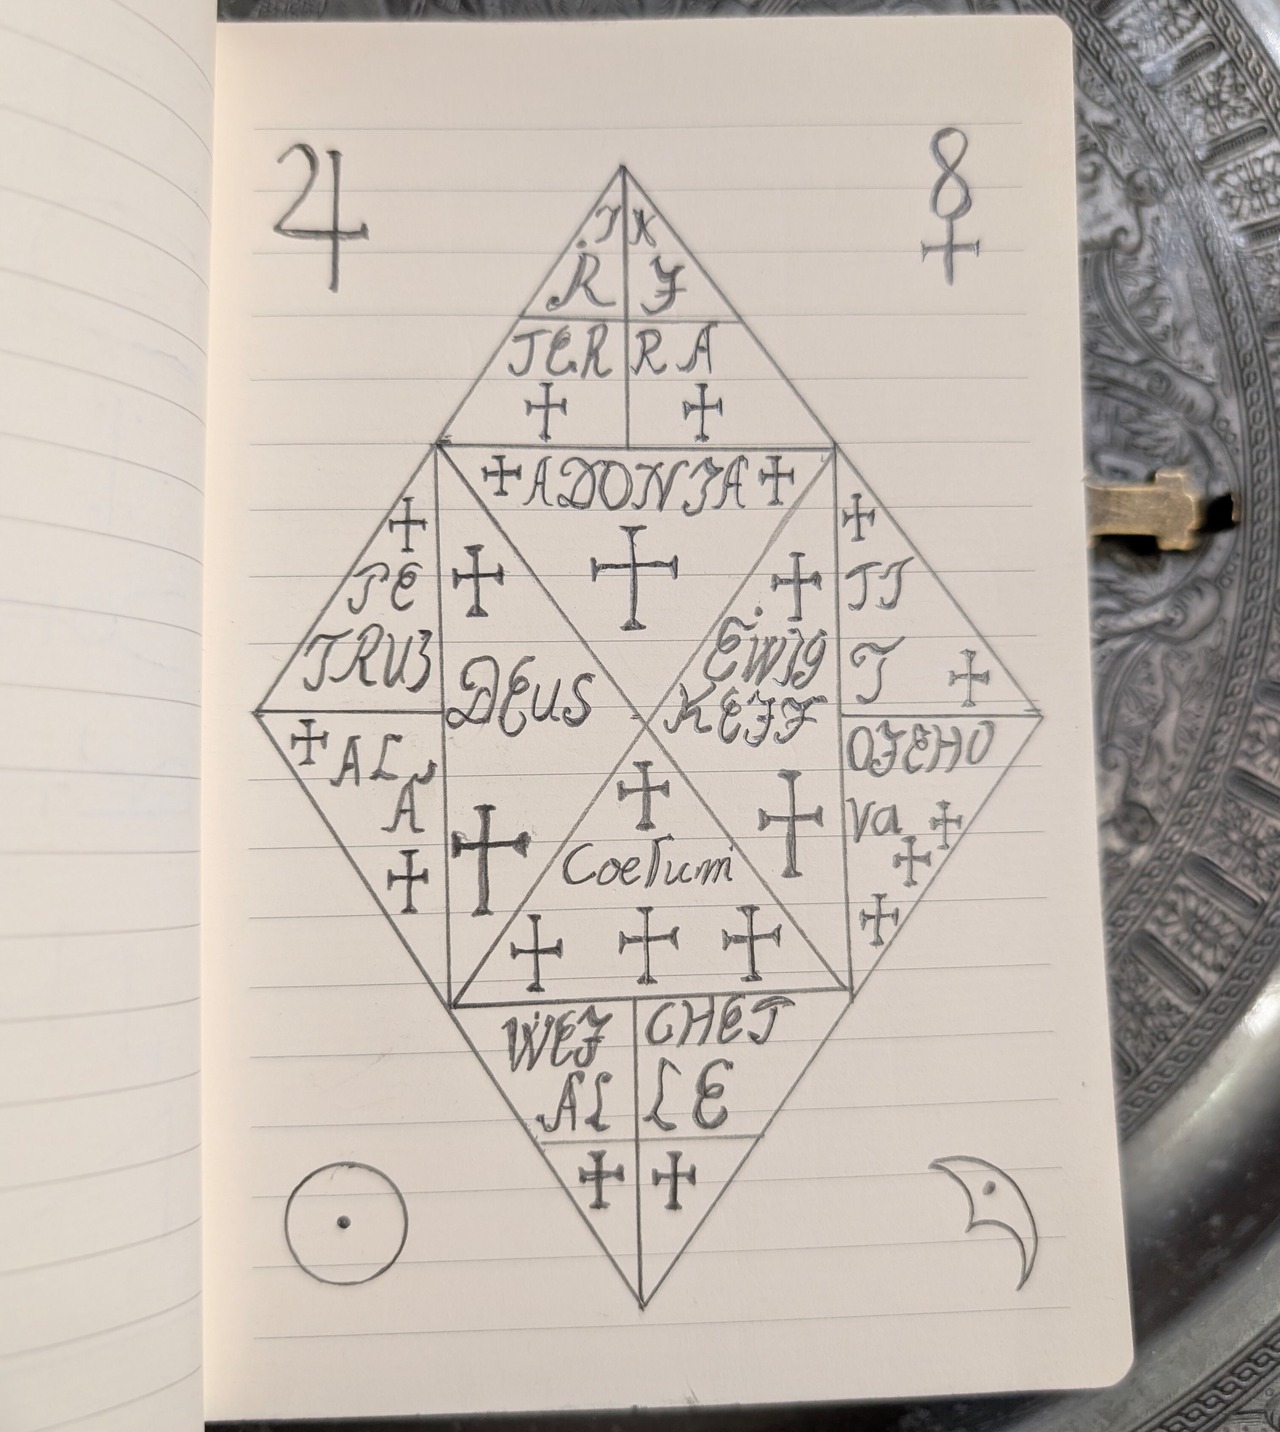 ♃
☿
T X
R F
TER RA
ADONJA
PE
TRUS
DEUS
EWIG
KEIT
TJ
T
AL
A
OJEHO
va
Coelum
WEJ CHET
AL LE
☉
☾